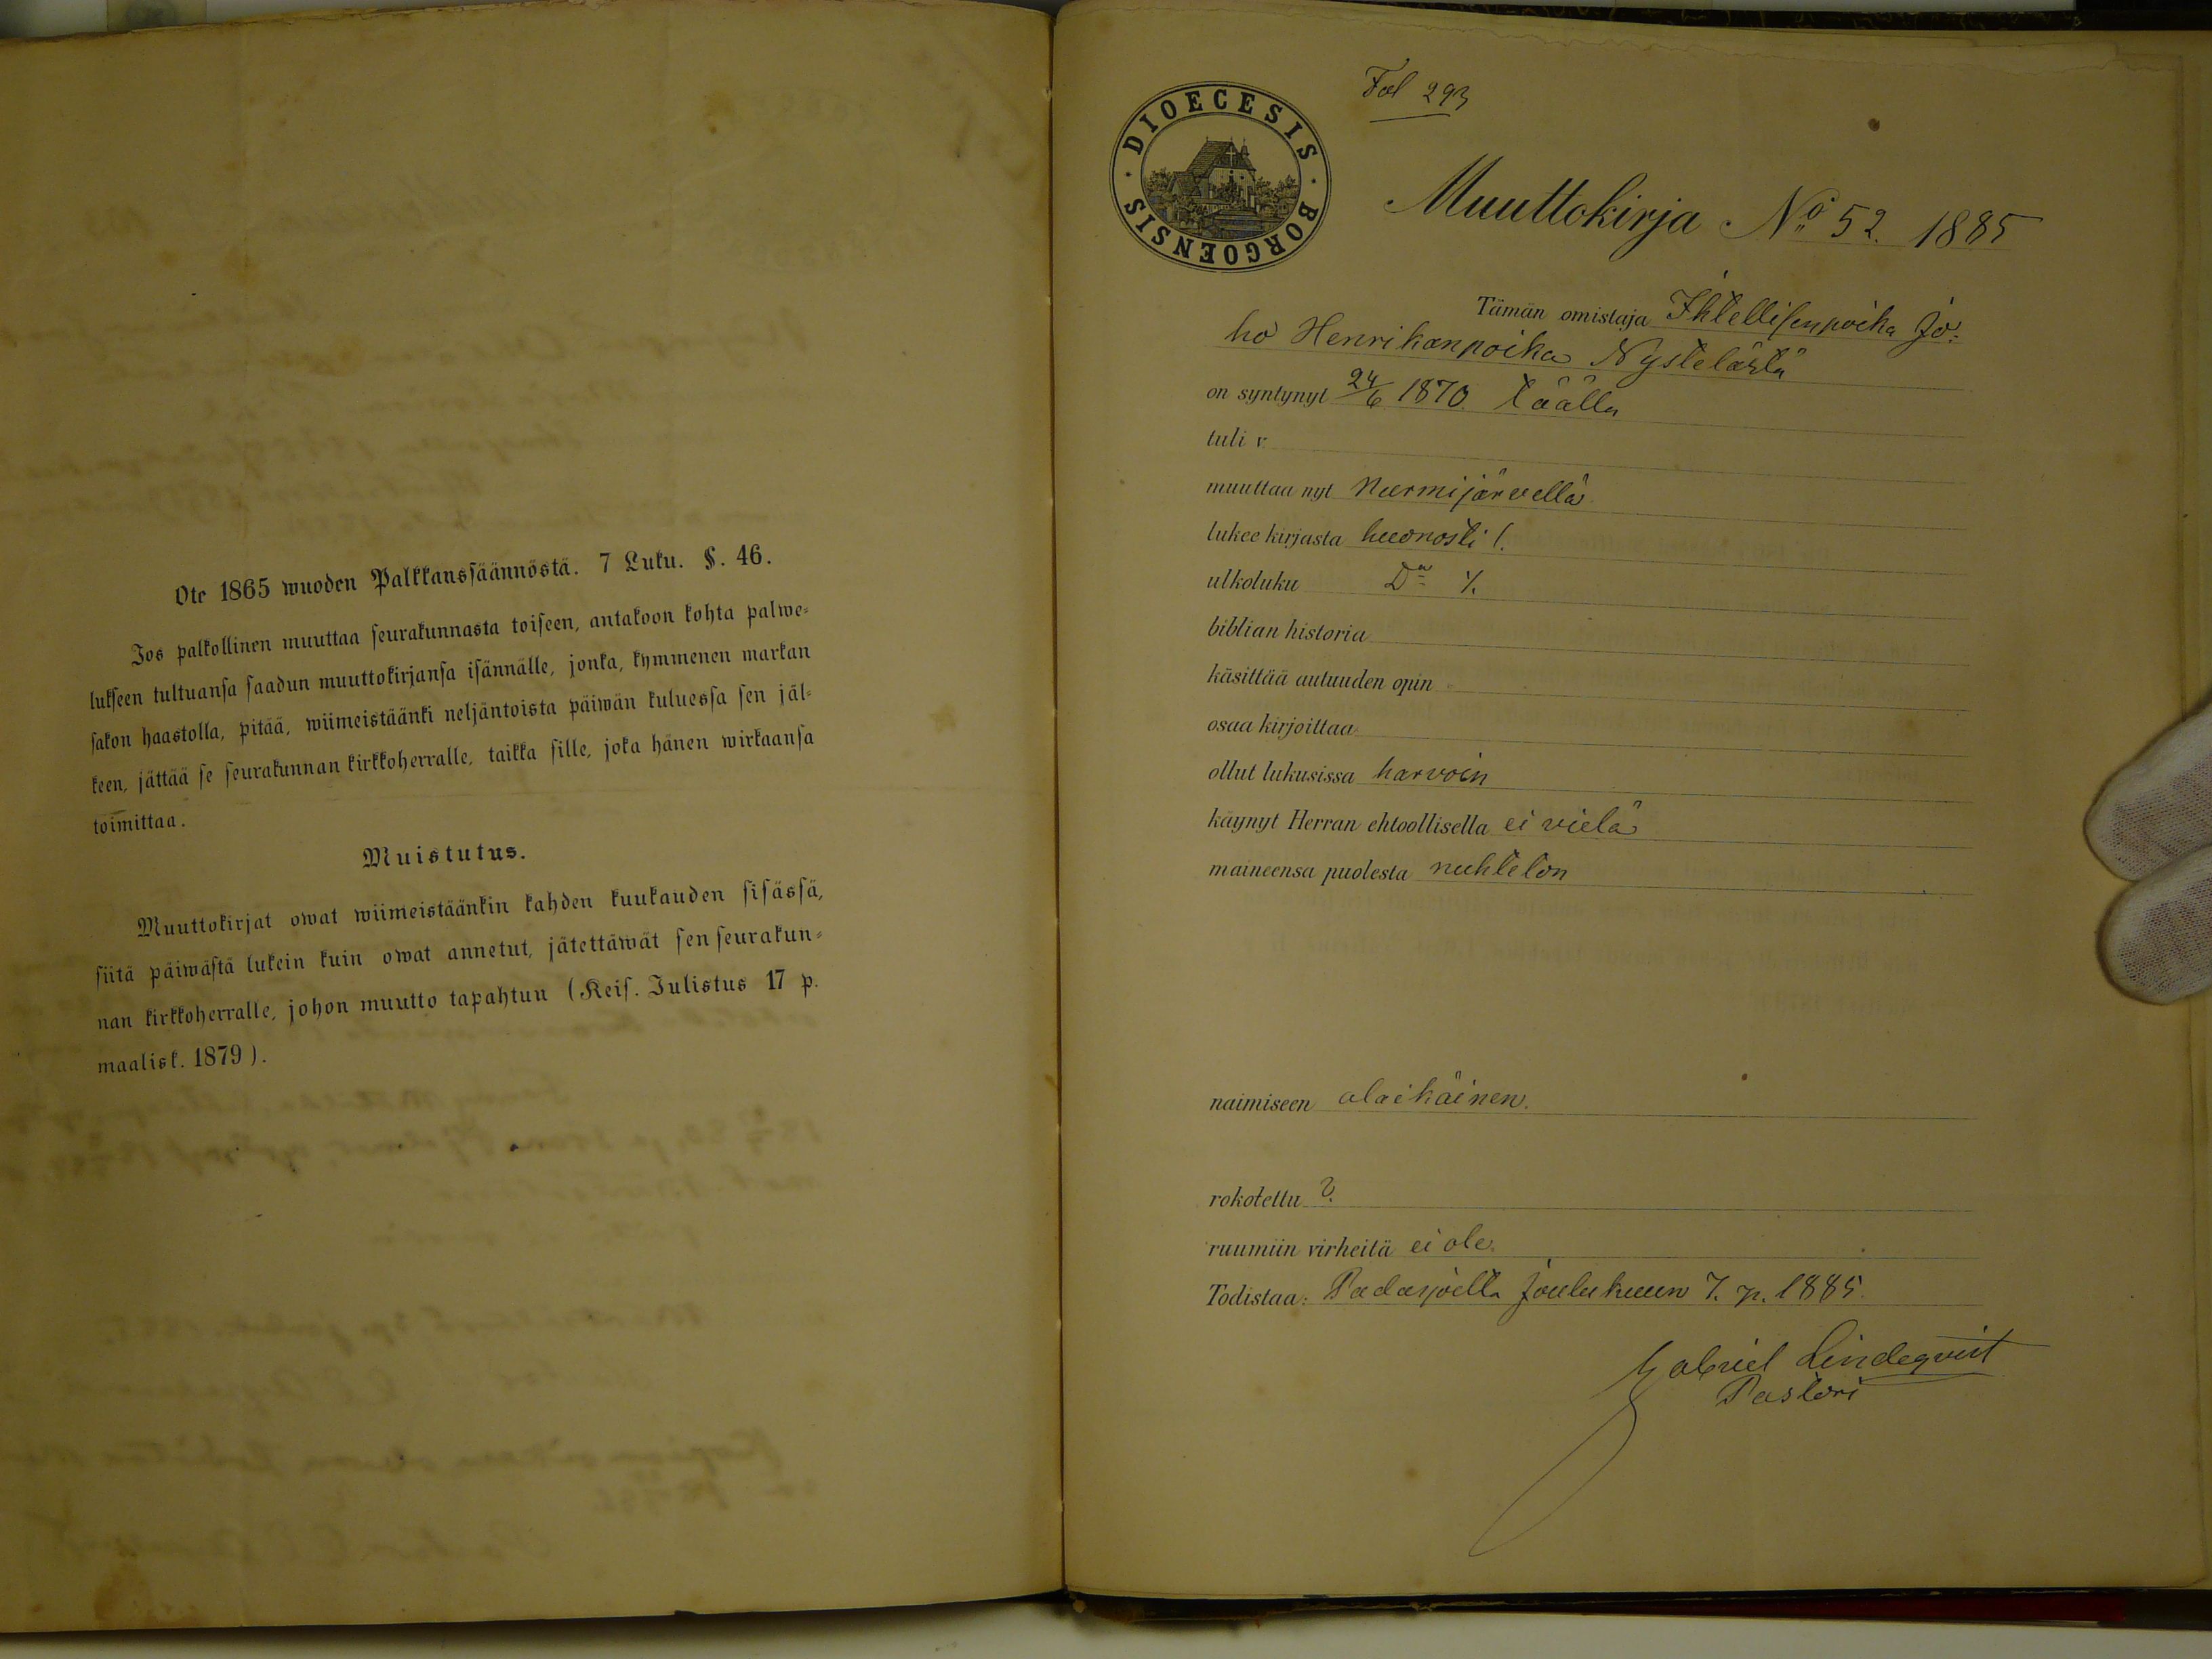 Ote 1865 wuoden Palkkanssäännöstä. 7 Luku. §. 46.
Jos palkollinen muuttaa seurakunnasta toiseen, antakoon kohta palwe-
lukseen tultuansa saadun muuttokirjansa isännälle, jonka, kymmenen markan
sakon haastolla, pitää, wiimeistäänki neljäntoista päiwän kuluessa sen jäl-
keen, jättää se seurakunnan kirkkoherralle, taikka sille, joka hänen wirkaansa
toimittaa.
Muistutus.
Muuttokirjat owat wiimeistäänkin kahden kuukauden sisässä,
siitä päiwästä lukein kuin owat annetut, jätettäwät sen seurakun-
nan kirkkoherralle, johon muutto tapahtuu (Keis. Julistus 17 p.
maalisk. 1879).
Fol 293
DIOECESIS · BORGOENSIS ·
Muuttokirja No 52. 1885
Tämän omistaja Ihtellisenpoika Jo-
ho Henrikanpoika Nystelästä
on syntynyt 24/6 1870 täällä
tuli v.
muuttaa nyt Nurmijärvellä
lukee kirjasta huonosti /.
ulkoluku Do /.
biblian historia
käsittää autuuden opin
osaa kirjoittaa
ollut lukusissa harvoin
käynyt Herran ehtoollisella ei vielä
maineensa puolesta nuhteton
naimiseen alaikäinen.
rokotettu ?
ruumiin virheitä ei ole.
Todistaa: Padasjoella Joulukuun 7. p. 1885.
Gabriel Lindeqvist
Pastori